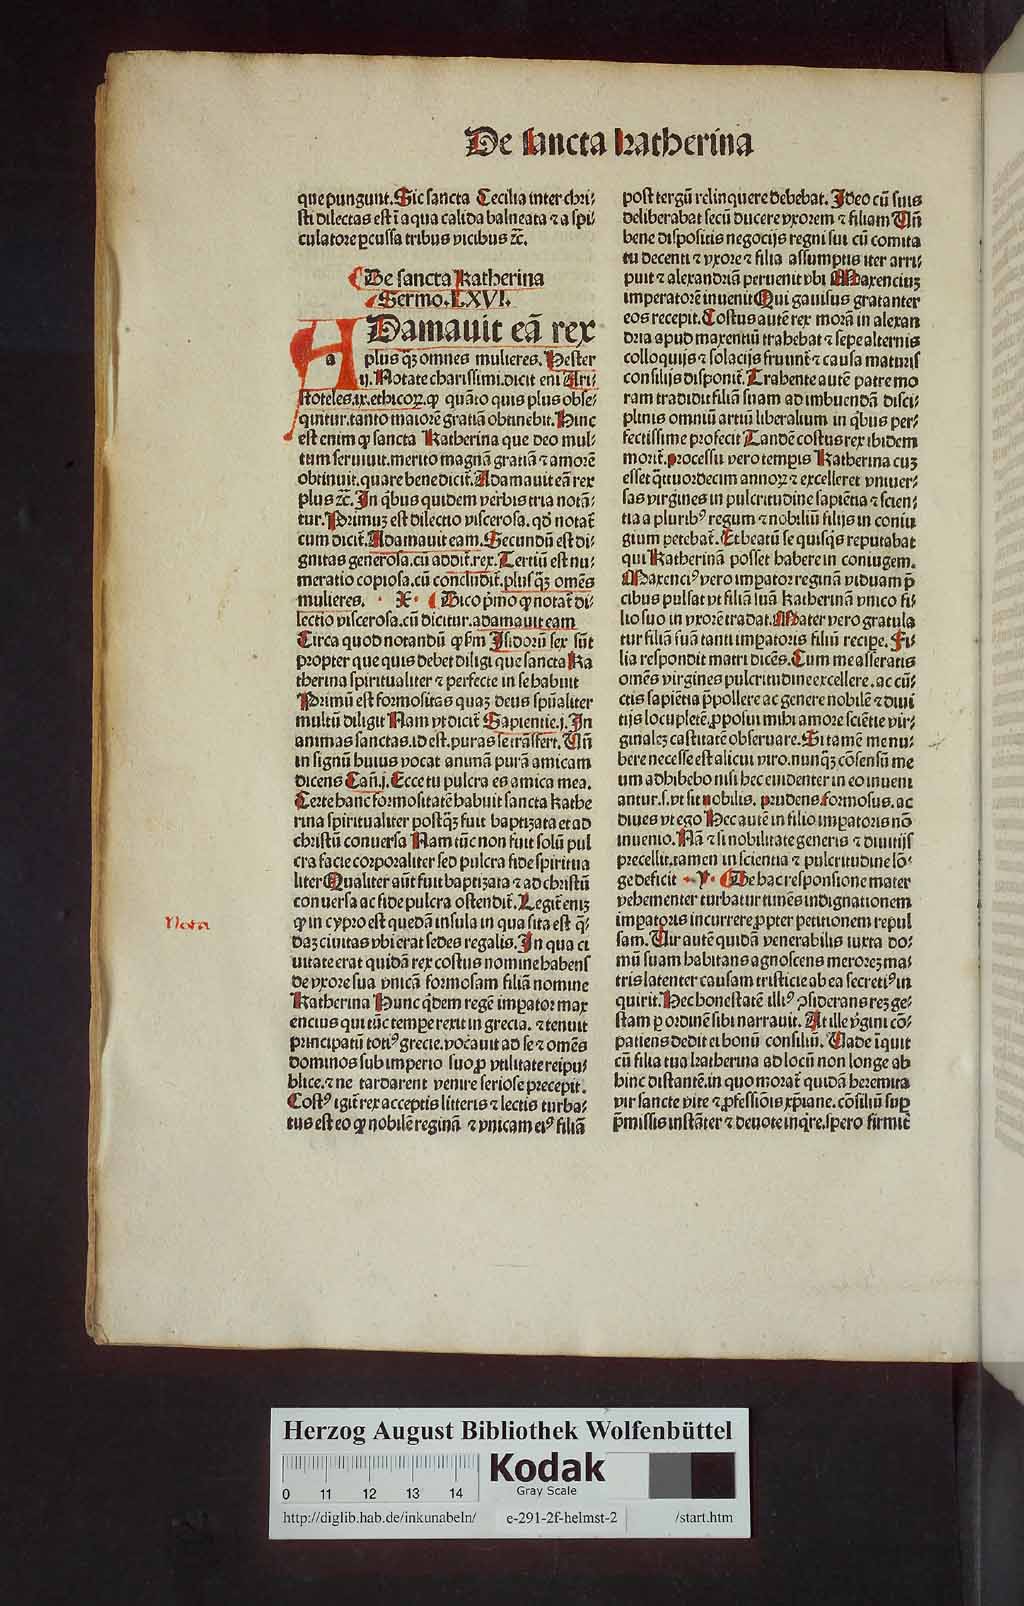 De sancta katherina
que pungunt. Sic sancta Cecilia inter chri⸗
sti dilectas est ī aqua calida balneata ⁊ a spi
culatore pcussa tribus vicibus ⁊c̄.
De sancta Katherina
Sermo. LXVI.
ADamauit eā rex
a plus qꝫ omnes mulieres. Hester
ij. Notate charissimi. dicit eni Ari⸗
stoteles. ix. ethicoꝝ. ꝙ quāto quis plus obse⸗
quitur. tanto maiorē gratiā obtinebit. Hinc
est enim ꝙ sancta Katherina que deo mul⸗
tum seruiuit. merito magnā gratiā ⁊ amorē
obtinuit. quare bene dicit̄. Adamauit eā rex
plus ⁊c̄. In qb̓us quidem verbis tria notā⸗
tur. Primuꝫ est dilectio viscerosa. qd̓ notat̄
cum dicit̄. Adamauit eam. Secundū est di⸗
gnitas generosa. cū addit̄. rex. Tertiū est nu⸗
meratio copiosa. cū concludit̄. plus qꝫ omēs
mulieres. · X · Dico p̓mo ꝙ notat̄ di⸗
lectio viscerosa. cū dicitur. adamauit eam
Circa quod notandū ꝙ ẜm Isidorū sex sūt
propter que quis debet diligi que sancta Ka
therina spiritualiter ⁊ perfecte in se habuit
Primū est formositas quaꝫ deus spūaliter
multū diligit Nam vt dicit̄ Sapientie. j. In
animas sanctas. id est. puras se trāsfert. Uñ
in signū huius vocat animā purā amicam
dicens Cañ. j. Ecce tu pulcra es amica mea.
Certe hanc formositatē habuit sancta Kathe
rina spiritualiter postqꝫ fuit baptizata et ad
christū conuersa Nam tūc non fuit solū pul
cra facie corporaliter sed pulcra fide spiritua
liter Qualiter aūt fuit baptizata ⁊ ad christū
conuersa ac fide pulcra ostendit̄. Legit̄ enīꝫ
ꝙ in cypro est quedā insula in qua sita est q̄⸗
daꝫ ciuitas vbi erat sedes regalis. In qua ci
uitate erat quidā rex costus nomine habens
de vxore sua vnicā formosam filiā nomine
Katherina Hunc qd̓em regē impator max
encius qui tūc tempe rexit in grecia. ⁊ tenuit
principatū toti⁹ grecie. vocauit ad se ⁊ omēs
dominos sub imperio suo ꝓ vtilitate reipu⸗
blice. ⁊ ne tardarent venire seriose precepit.
Cost⁹ igit̄ rex acceptis litteris ⁊ lectis turba⸗
tus est eo ꝙ nobilē reginā ⁊ vnicam ei⁹ filiā
post tergū relinquere debebat. Ideo cū suis
deliberabat secū ducere vxorem ⁊ filiam Uñ
bene dispositis negocijs regni sui cū comita
tu decenti ⁊ vxore ⁊ filia assumptis iter arri⸗
puit ⁊ alexandriā peruenit vbi Maxenciuꝫ
imperatorē inuenit Qui gauisus gratanter
eos recepit. Costus autē rex morā in alexan
dria apud maxentiū trahebat ⁊ sepe alternis
colloquijs ⁊ solacijs fruunt̄ ⁊ causa maturis
consilijs disponit̄. Trahente autē patre mo
ram tradidit filiā suam ad imbuendā disci⸗
plinis omniū artiū liberalium in qb̓us per⸗
fectissime profecit Tandē costus rex ibidem
morit̄. processu vero tempis Katherina cuꝫ
esset q̄ttuordecim annoꝝ ⁊ excelleret vniuer⸗
sas virgines in pulcritudine sapiētia ⁊ scien⸗
tia a plurib⁹ regum ⁊ nobiliū filijs in coniu
gium petebat̄. Et beatū se quisqs reputabat
qui Katherinā posset habere in coniugem.
Maxenci⁹ vero impator reginā viduam p̄
cibus pulsat vt filiā suā Katherinā vnico fi⸗
lio suo in vxorē tradat. Mater vero gratula
tur filiā suā tanti impatoris filiū recipe. Fi⸗
lia respondit matri dicēs. Cum me asseratis
omēs virgines pulcritudine excellere. ac cū⸗
ctis sapiētia p̄pollere ac genere nobilē ⁊ diui
tijs locupletē. ꝓposui mihi amore sciētie vir⸗
ginaleꝫ castitatē obseruare. Si tamē me nu⸗
bere necesse est alicui viro. nunqꝫ cōsensū me
um adhibebo nisi hec euidenter in eo inueni
antur. s. vt sit nobilis. prudens formosus. ac
diues vt ego Hec autē in filio impatoris nō
inuenio. Nā ⁊ si nobilitate generis ⁊ diuitijs
precellit. tamen in scientia ⁊ pulcritudine lō⸗
ge deficit · Y · De hac responsione mater
vehementer turbatur timēs indignationem
impatoris incurrere ꝓpter petitionem repul
sam. Uir autē quidā venerabilis iuxta do⸗
mū suam habitans agnoscens meroreꝫ ma⸗
tris latenter causam tristicie ab ea secreti⁹ in
quirit. Hec honestatē illi⁹ ↄsiderans reꝫ ge⸗
stam p ordinē sibi narrauit. At ille v̓gini cō⸗
patiens dedit ei bonū consiliū. Uade īquit
cū filia tua katherina ad locū non longe ab
hinc distantē. in quo morat̄ quidā heremita
vir sancte vite ⁊ ꝓfessiōis xp̄iane. cōsiliū suꝑ
p̄missis instāter ⁊ deuote inq̓re. spero firmit̄
Nota
Herzog August Bibliothek Wolfenbüttel
0 11 12 13 14
Kodak
Gray Scale
http://diglib.hab.de/inkunabeln/ e-291-2f-helmst-2 /start.htm